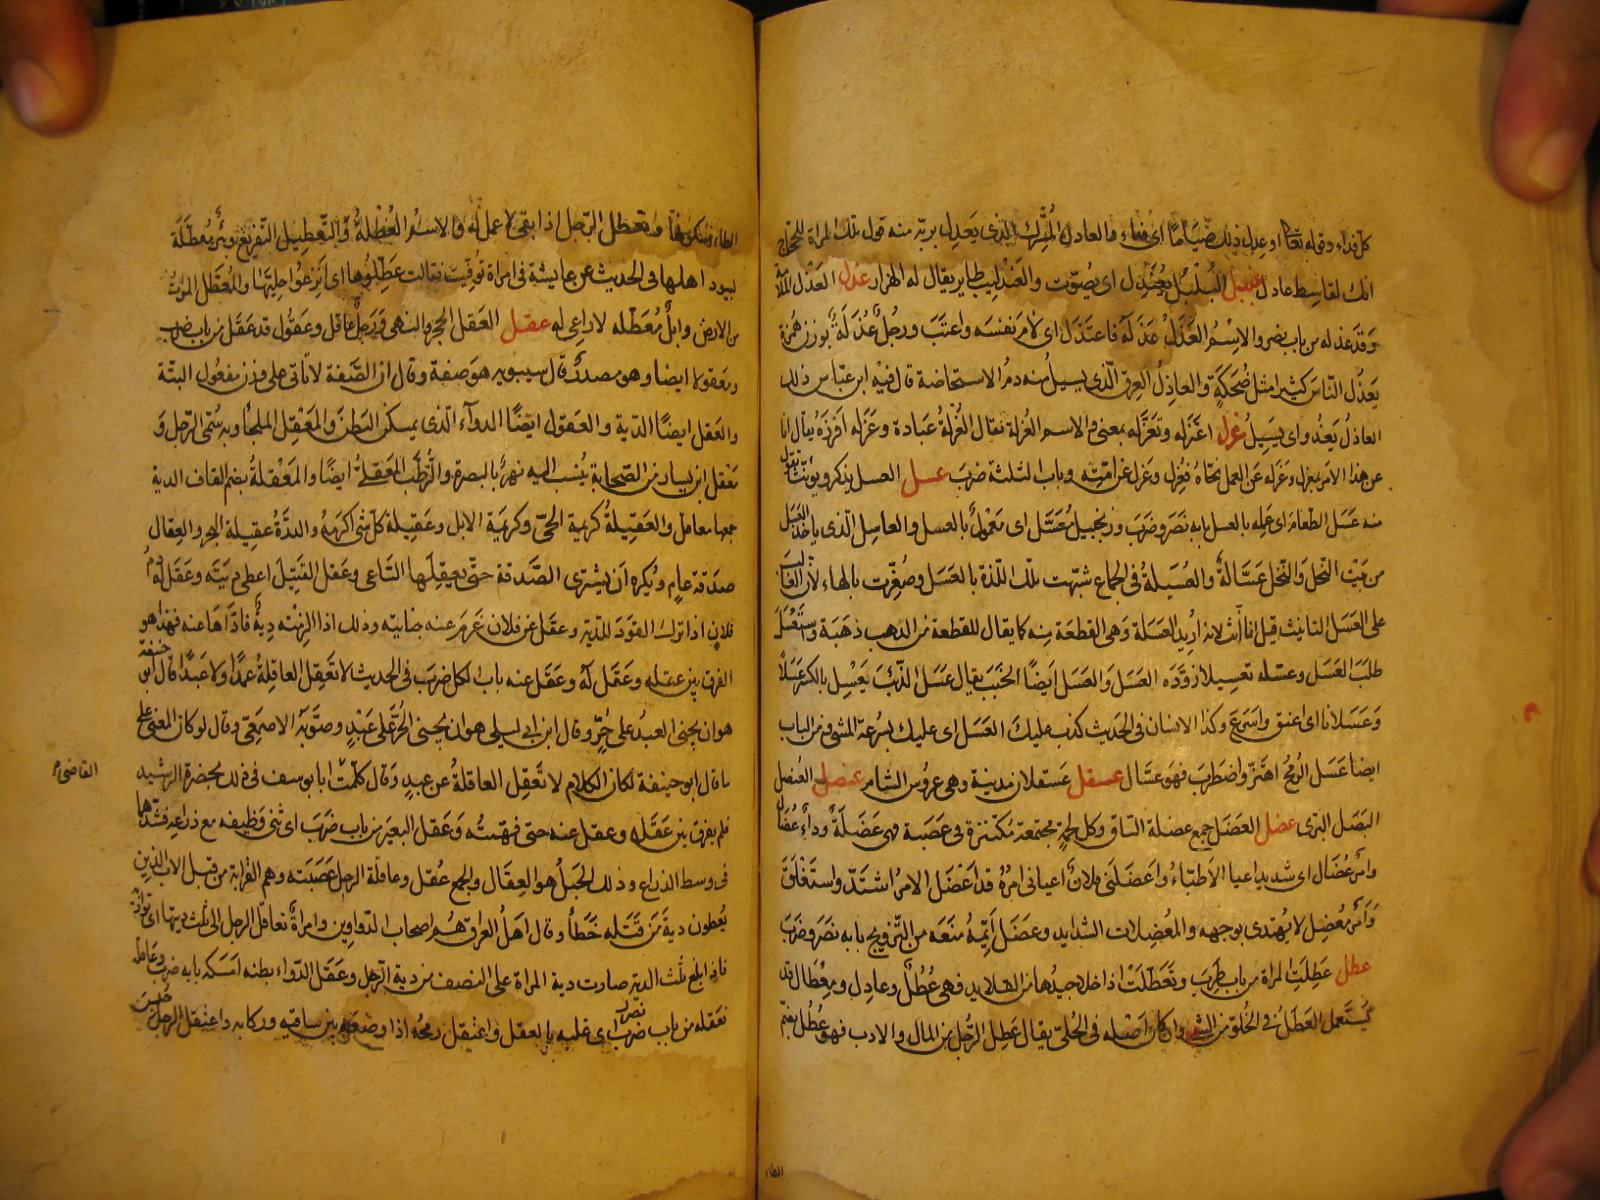 كل فداء وقوله تعالى او عدل ذلك صياما اى فداء والعادل المشرك الذى يعدل بربه منه قول تلك المراة للحجاج
انك لقاسط عادل عندل البلبل يعندل اى يصوت والعندليب طاير يقال له الهزار عذل العذل الملامة
وقد عذله من باب نصر والاسم العذل عذله فاعتذل اى لام نفسه واعتب ورجل عذلة بوزن همزة
يعذل الناس كثيرا مثل ضحكة والعاذل العرق الذى يسيل منه دم الاستحاضة قال فيه ابن عباس ذلك
العاذل يغذو اى يسيل عزل اعتزله وتعزله بمعنى والاسم العزلة تقال العزلة عبادة وعزله افرزه يقال انا
عن هذا الامر بمعزل وعزله عن العمل نحاه فعزل وعزل عن امته وباب الثلثة ضرب عسل العسل يذكر ويونث تقول
منه عسل الطعام اى عمله بالعسل بابه نصر وضرب وزنجبيل معسل اى معمول بالعسل والعاسل الذى ياخذ العسل
من بيت النحل والنحل عسالة والعسيلة فى الجماع شبهت تلك اللذة بالعسل وصغرت بالهاء لان الغالب
على العسل التانيث قيل انما انث لانه اريد العسلة وهى القطعة منه كما يقال للقطعة من الذهب ذهبة واستعسل
طلب العسل وعسله تعسيلا زوده العسل والعسل ايضا الخبب يقال عسل الذئب يعسل بالكسر عسلا
وعسلانا اى اعنق واسرع وكذا الانسان فى الحديث كذب عليك العسل اى عليك بسرعة المشى ومن الباب
ايضا عسل الرمح اهتز واضطرب فهو عسال عسقل عسقلان مدينة وهى عروس الشام عنصل العنصل
البصل البرى عضل العضل جمع عضلة الساق وكل لحمة مجتمعة مكتنزة فى عصبة فهى عضلة وداء عضال
وامر عضال اى شديد اعيا الاطباء واعضلنى فلان اعيانى امره قد اعضل الامر اشتد واستغلق
وامر معضل لا يهتدى بوجهه والمعضلات الشدايد وعضل ايمه منعه من التزويج بابه نصر وضرب
عطل عطلت المراة من باب طرب وتعطلت اذا خلا جيدها من القلايد فهى عطل وعادل ومعطال قد
يستعمل العطل فى الخلو من الشئ وان كان اصله فى الحلى يقال عطل الرجل من المال والادب فهو عطل بضم
الطاء
الطاء وسكونها وتعطل الرجل اذا بقى لا عمل له والاسم العطلة والتعطيل التفريغ وبئر معطلة
لبيود اهلها فى الحديث عن عايشة فى امراة توفيت فقالت عطلوها اى انزعوا حليها والمعطل الموت
من الارض وابل معطله لا راعى له عقل العقل الحجر والنهى ورجل عاقل وعقول قد عقل من باب ضرب
ومعقولا ايضا وهو مصدر قال سيبويه هو صفة وقال ان الصفة لا تاتى على وزن مفعول البتة
والعقل ايضا الدية والعقول ايضا الدواء الذى يمسك البطن والمعقل الملجأ وبه سمى الرجل و
معقل ابن يسار من الصحابة ينسب اليه نهر بالبصرة والرطب المعقلى ايضا والمعقلة بضم القاف الدية
جمعها معاقل والعقيلة كريمة الحى وكريمة الابل وعقيلة كل شى اكرمه والدرة عقيلة البحر والعقال
صدقة عام ويكره ان يشترى الصدقة حتى يعقلها الساعى وعقل القتيل اعطى ديته وعقل له دم
فلان اذا ترك القود للدية وعقل عن فلان غرم عنه جنايته وذلك اذا الزمته دية فاداها عنه فهذا هو
الفرق بين عقله وعقل له وعقل عنه باب الكل ضرب فى الحديث لا تعقل العاقلة عمدا ولا عبدا قال ابو حنيفة
هو ان يجنى العبد على حر وقال ابن ابى ليلى هو ان يجنى الحر على عبد وصوبه الاصمعى وقال لو كان المعنى على
ما قال ابو حنيفة لكان الكلام لا تعقل العاقلة عن عبد وقال كلمت ابا يوسف فى ذلك بحضرة الرشيد
القاضى
فلم يفرق بين عقله وعقل عنه حتى فهمته وعقل البعير من باب ضرب اى ثنى وظيفه مع ذراعه فشدهما
فى وسط الذراع وذلك الحبل هو العقال والجمع عقل وعاقلة الرجل عصبته وهم القرابة من قبل الاب الذين
يعطون دية من قتله خطأ وقال اهل العراق هم اصحاب الدواوين وامراة تعاقل الرجل الى ثلث ديتها اى توازنه
فاذا بلغ ثلث الدية صارت دية المراة على النصف من دية الرجل وعقل الدواء بطنه امسكه بابه ضرب وعاقله
فعقله من باب نصر اى غلبه بالعقل واعتقل رمحه اذا وضعه بين ساقيه وركابه واعتقل الرجل حبس